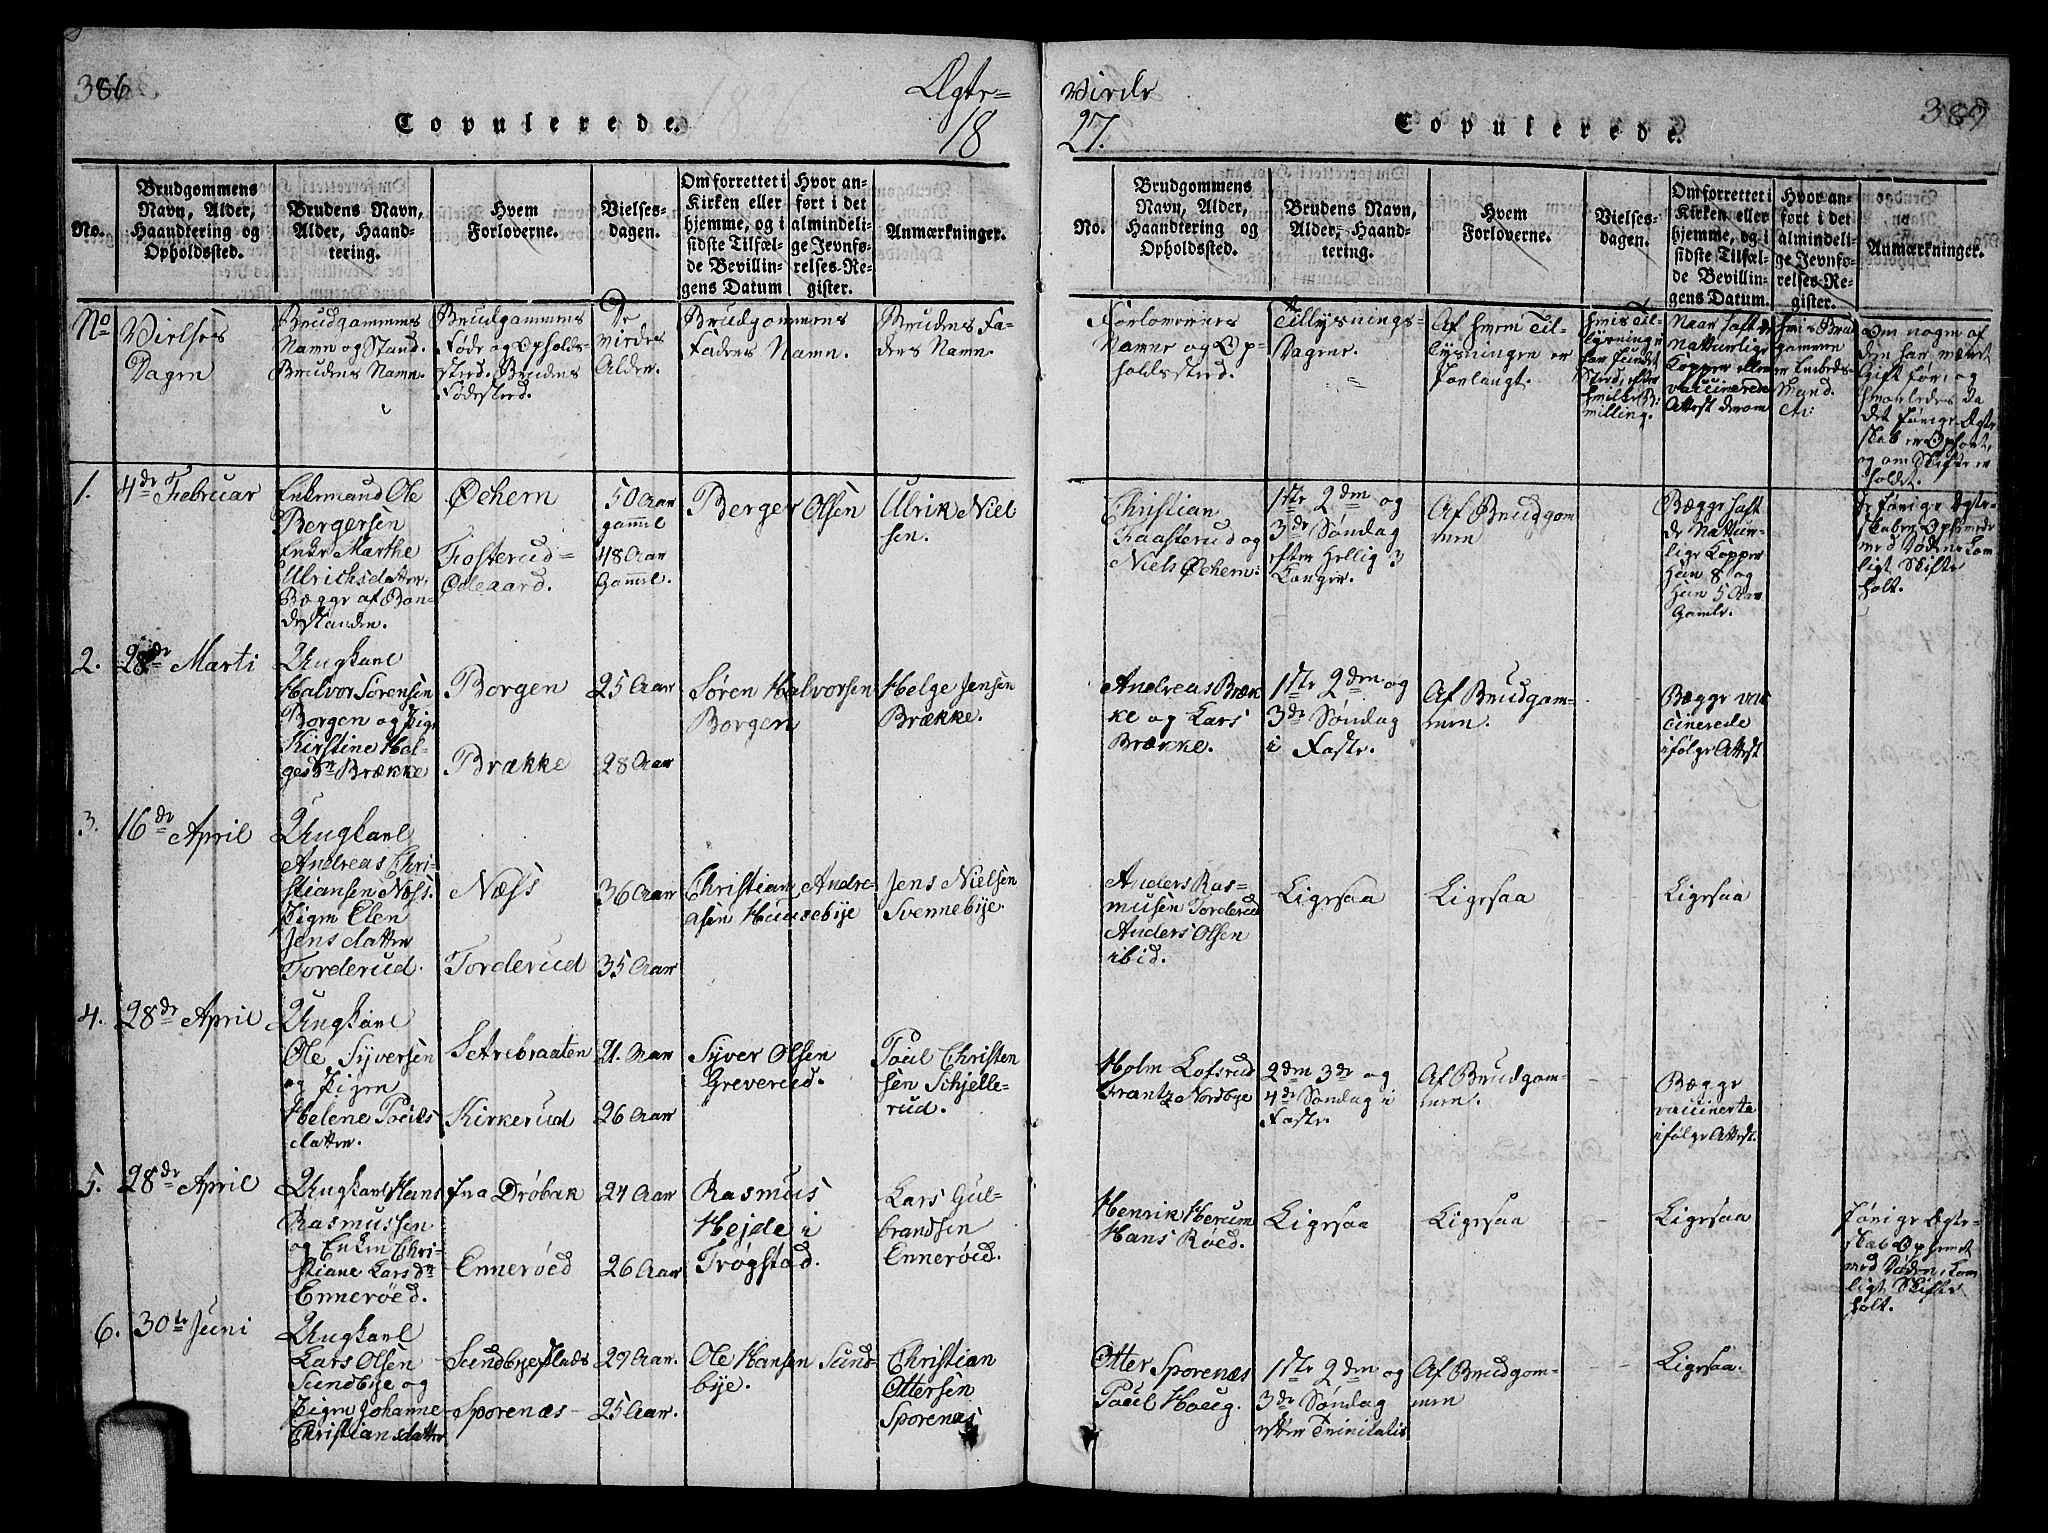 386
Ægte-
18
Copulerede.
No.
Brudgommens
Navn, Alder,
Haandtering og
Opholdssted.
Brudens Navn,
Alder, Haand-
tering.
Hvem
Forloverne.
Vielses-
dagen.
Om forrettet i
Kirken eller
hjemme, og i
sidste Tilfæl-
de Bevillin-
gens Datum
Hvor an-
ført i det
almindeli-
ge Jevnfø-
relses-Re-
gister.
Anmærkninger.
No
Vielses
Dagen
Brudgommens
Navn og Stand.
Brudens Navn.
Brudgommens
Føde og Opholds-
sted. Brudens
Fødested.
De
viedes
Alder.
Brudgommens
Faders Navn.
Brudens Fa-
ders Navn.
1.
4de Februar
Enkemand Ole
Bergersen
Enke Marthe
Ulrichsdatter,
Begge af Bon-
destanden.
Øchern
Fosterud-
Ødegaard.
50 Aar
gammel
48 Aar
Gammel.
Berger Olsen
Ulrik Niel
sen.
2.
28de Marti
Ungkarl
Halvor Sørensen
Borgen og Pige
Kirstine Hel-
gesdr Brække
Borgen
Brække
25 Aar
28 Aar
Søren Halvorsen
Borgen
Helge Jensen
Brække.
3.
16de April
Ungkarl
Andreas Chri-
stiansen Næss.
Pigen Elen
Jensdatter
Torderud.
Næss
Torderud
36 Aar
35 Aar
Christian Andre-
asen Huusebye
Jens Nielsen
Svennebye.
4.
28de April
Ungkarl
Ole Syversen
og Pigen
Helene Pouls
datter.
Setrebraaten
Kirkerud
21. Aar
26 Aar
Syver Olsen
Greverud.
Poul Christen
sen Schjelle-
rud.
5.
28de April
Ungkarl Hans
Rasmussen
og Enken Chri-
stiane Larsdr
Ennerøed.
Fra Drøbak
Ennerøed
24 Aar
26 Aar
Rasmus
Hejde i
Trøgstad.
Lars Gul-
brandsen
Ennerøed.
6.
30te Juni
Ungkarl
Lars Olsen
Sundbye og
Pigen Johanne
Christiansdatter
Sundbye Plads
Sporenæs
29 Aar.
25 Aar.
Ole Hansen Sund-
bye.
Christian
Ottersen
Sporenæs
Viede
27.
389
Copulerede.
No.
Brudgommens
Navn, Alder,
Haandtering og
Opholdssted.
Brudens Navn,
Alder, Haand-
tering.
Hvem
Forloverne.
Vielses-
dagen.
Om forrettet i
Kirken eller
hjemme, og i
sidste Tilfæl-
de Bevillin-
gens Datum.
Hvor an-
ført i det
almindeli-
ge Jevnfø-
relses-Re-
gister.
Anmærkninger.
Forlovernes
Navne og Op-
holdssted.
Tillysnings-
Dagene.
Af hvem Til-
lysningen er
forlangt.
Hvis Til-
lysning ei
har fundet
Sted, efter
hvilken Be-
villing.
Naar havt de
naturlige
Kopper eller
vaccinerede
Attest derom
Hvis Brud
gommen
er Enkeds-
Mand.
Om nogen af
dem har været
Gift før, og
hvorledes da
det forige Ægte
skab er Ophørt,
og om Skifte er
holdt.
Christian
Faasterud og
Niels Øchern.
1ste 2den og
3de Søndag
efter Hellig 3
Konger.
Af Brudgom
men
Begge haft
de Naturr-
lige Kopper
Han 8 og
Hun 5 Aar
Gamle.
De forige Ægte-
skaber Ophævede
med Døden. Lov
ligt Skifte
holt.
Andreas Bræk
ke og Lars
Brække.
1ste 2den og
3de Søndag
i Faste.
Af Brudgom-
men.
Begge vac
cinerede
ifølge Attest
Anders Ras-
musen Torderud
Anders Olsen
ibid.
Ligesaa
Ligesaa
Ligesaa
Holm Lofsrud
Frantz Nordbye
2den 3de og
4de Søndag i
Faste.
Af Brudgom-
men.
Begge
vaccinerte
ifølge Attest.
Henrik Herum
Hans Røed.
Ligesaa
Ligesaa
Ligesaa
Forige Ægte-
skab Ophævet
med Døden, Lov
ligt Skifte
holt.
Otter Sporenæs
Poul Houg.
1ste 2den og
3de Søndag
efter Trinitatis
Af Brudgom-
men
Ligesaa.